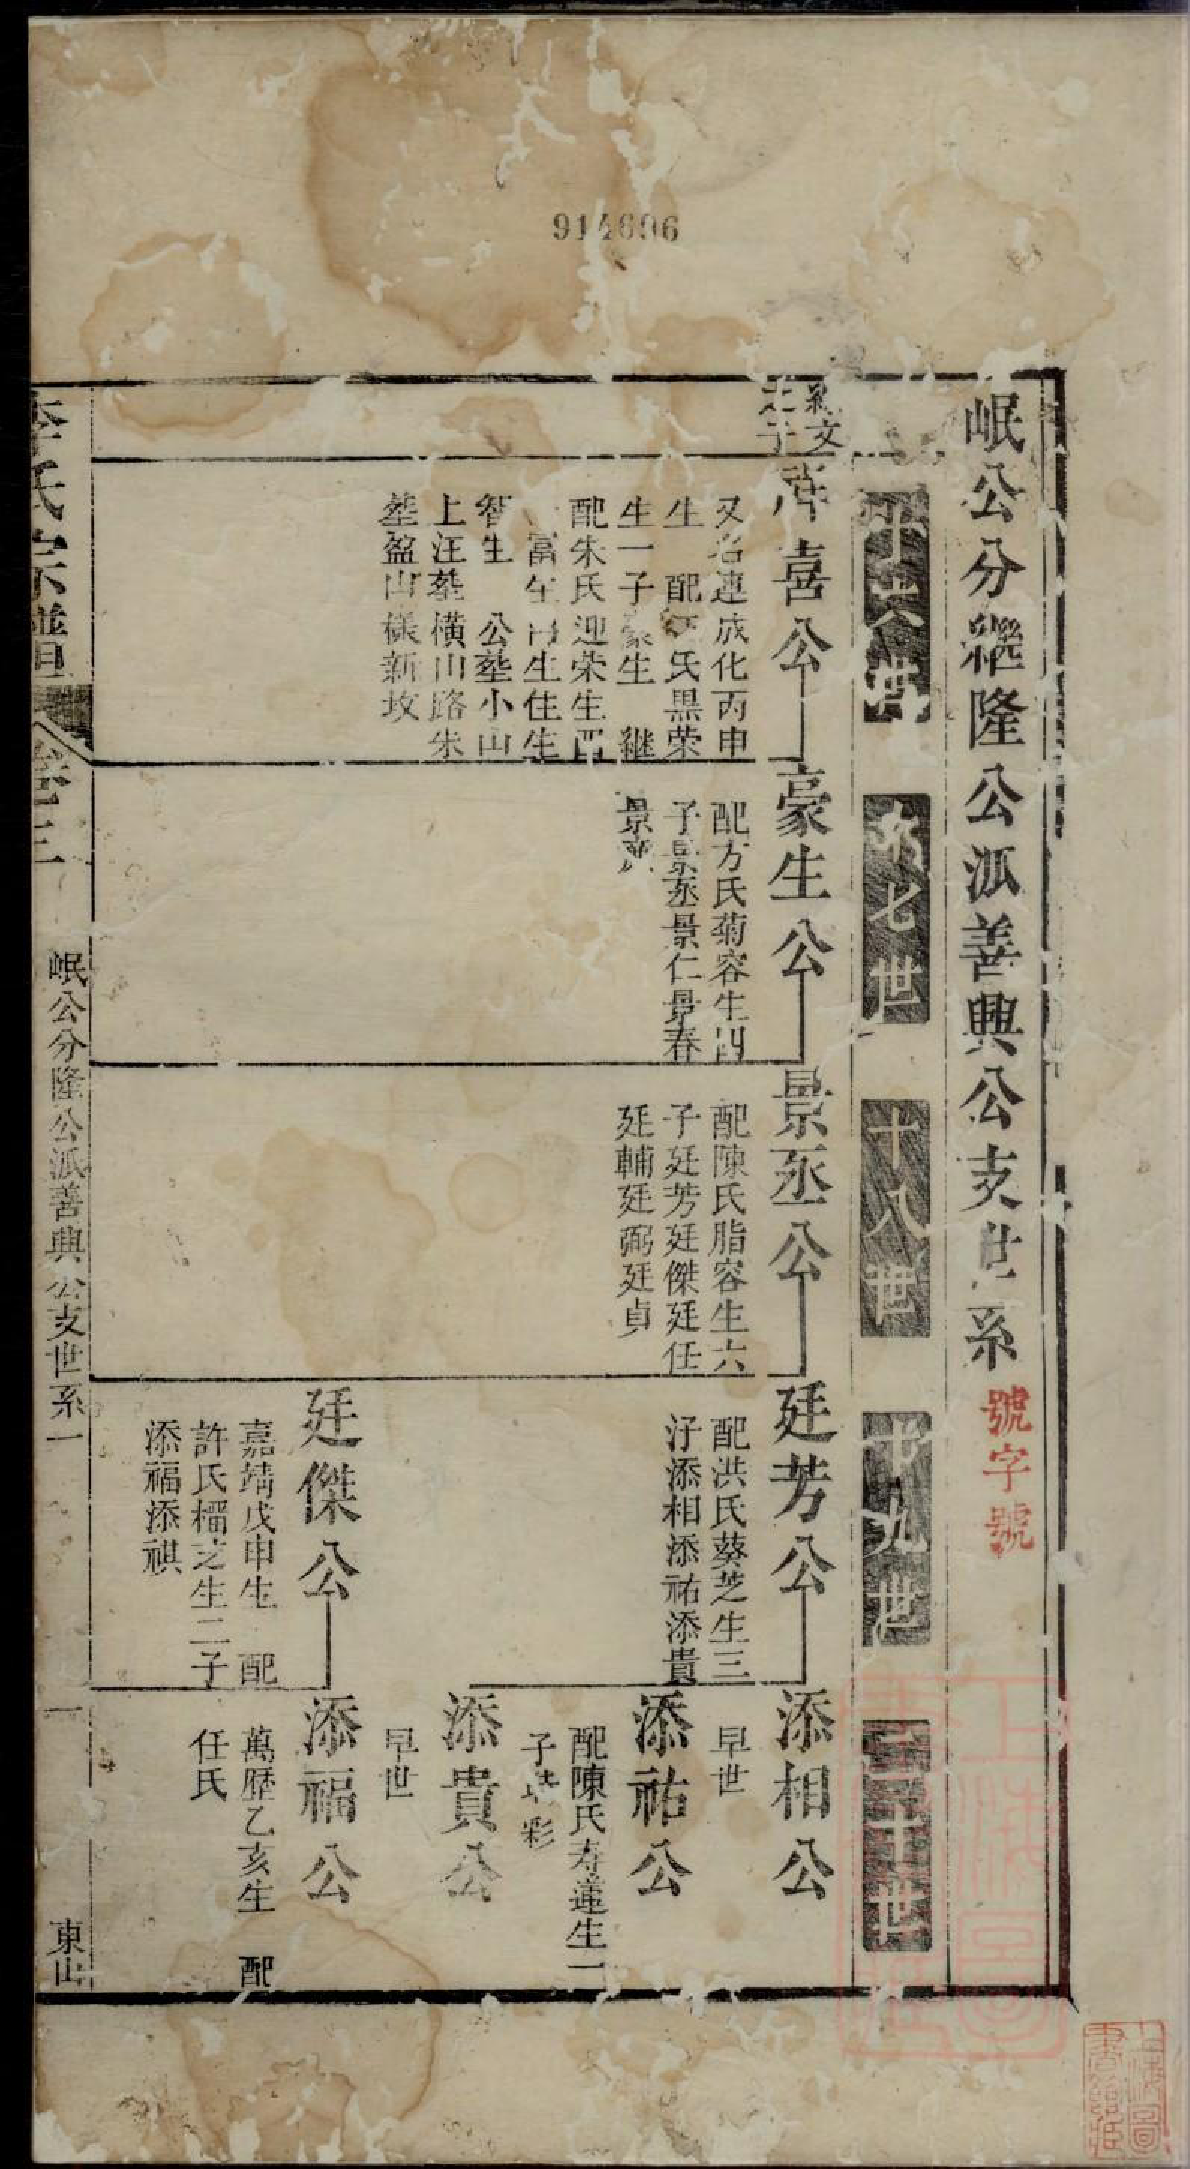 914606
岷公分繼隆公派善興公支世系
號字號
十六世
十七世
十八世
十九世
二十世
文
之子
喜公
又名連成化丙申
生 配 氏黑荣
生一子豪生 継
配朱氏迎荣生四
富生 生住生
智生 公塟小山
上汪塟橫山路朱
塟盈山樣新坟
豪生公
配方氏菊容生四
子景丞景仁景春
景
景丞公
配陳氏脂容生六
子廷芳廷傑廷任
廷輔廷弼廷貞
廷芳公
配洪氏葵芝生三
子添相添祐添貴
廷傑公
嘉靖戊申生 配
許氏榴芝生二子
添福添祺
添相公
早世
添祐公
配陳氏寿蓮生一
子 彩
添貴公
早世
添福公
萬歷乙亥生 配
任氏
李氏宗譜
卷三
岷公分隆公派善興公支世系一
一
東山
上海圖
書館藏